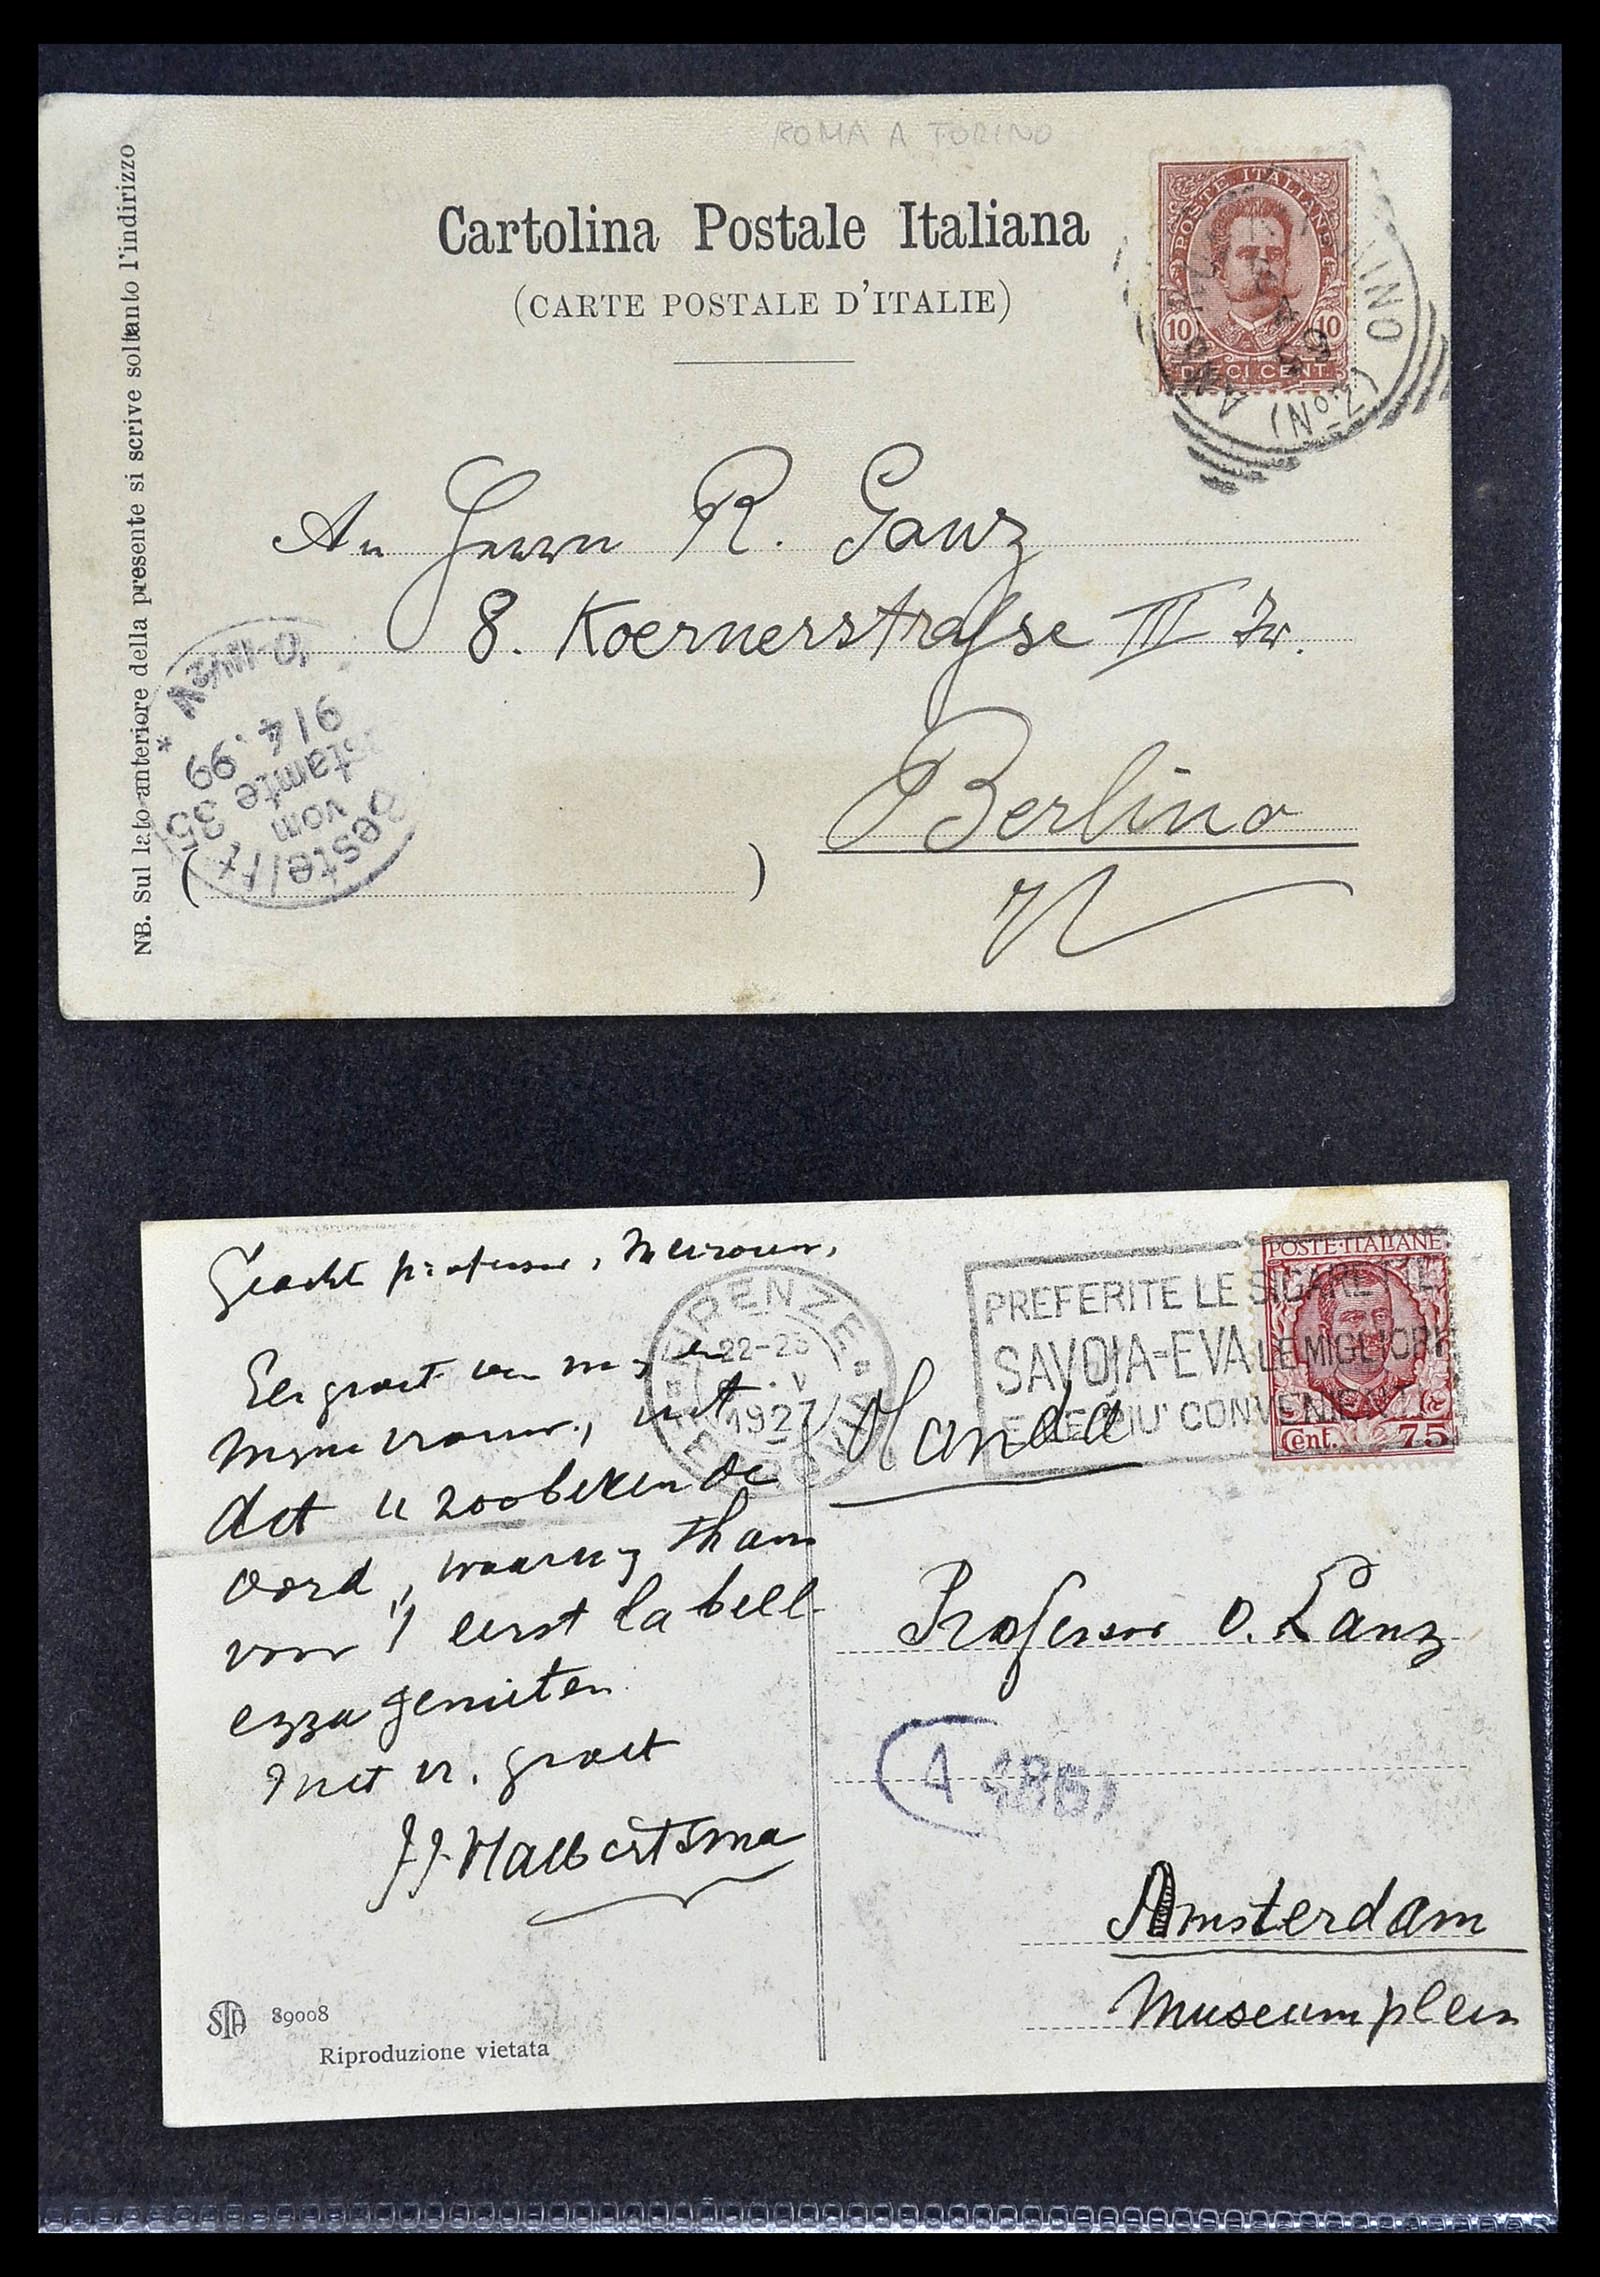 ROMA A TORINO
Cartolina Postale Italiana
(CARTE POSTALE D'ITALIE)
NB. Sul lato anteriore della presente si scrive soltanto l'indirizzo
POSTE ITALIANE
10 10
DIECI CENT.
(No 2)
An Herrn R. Ganz
8. Koernerstrasse III Tr.
Berlino
Bestellt
vom
Postamte 35
9/4.99
Geacht professor, Mevrouw,
Een groet van mij en
mijne vrouw, uit
dit u zoo bekende
oord, waarin zij thans
voor 't eerst la bell-
ezza genieten.
Met vr. groet
J.J. Halbertsma
FIRENZE
22-23
V
1927
FERROVIA
PREFERITE LE SIGARETTE
SAVOIA=EVA LE MIGLIORI
E LE PIU' CONVENIENTI
POSTE·ITALIANE
Cent. 75
Olanda
Professor O. Lanz
A
Amsterdam
Museumplein
STA 89008
Riproduzione vietata